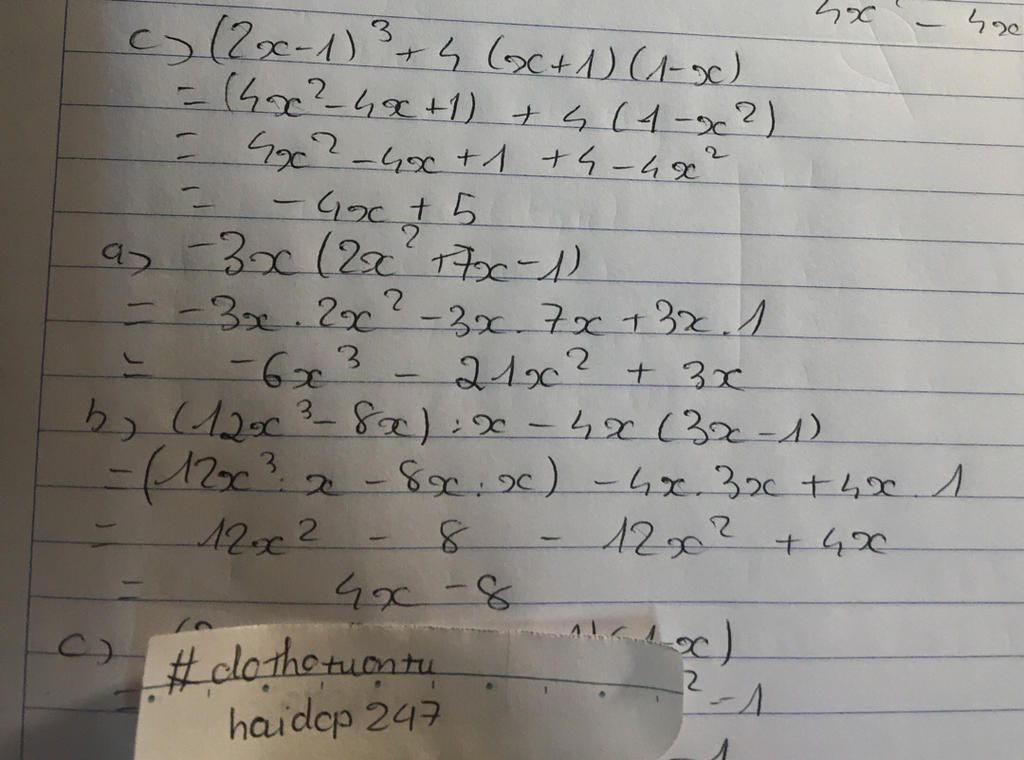 4x² - 4x
c) (2x-1)³ + 4 (x+1)(1-x)
= (4x² - 4x + 1) + 4 (1 - x²)
= 4x² - 4x + 1 + 4 - 4x²
= - 4x + 5
a) -3x (2x² + 7x - 1)
= -3x . 2x² - 3x . 7x + 3x . 1
= -6x³ - 21x² + 3x
b) (12x³ - 8x) : x - 4x (3x - 1)
= (12x³ : x - 8x : x) - 4x . 3x + 4x . 1
= 12x² - 8 - 12x² + 4x
= 4x - 8
c) x)
= ² - 1
#clothotuontu
haidcp247